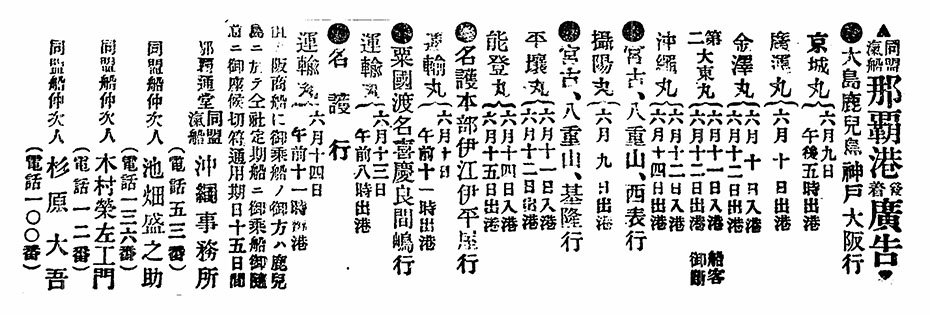 同盟汽船那覇港發着廣告
大島鹿兒島神戸大阪行
京城丸 六月九日午後五時出港
廣運丸 六月十日出港
金澤丸 六月十日入港 六月十二日出港
第二大東丸 六月十一日入港 六月十二日出港 船客御斷
沖繩丸 六月十二日入港 六月十四日出港
宮古、八重山、西表行
攝陽丸 六月九日出港
宮古、八重山、基隆行
平壤丸 六月十一日入港 六月十二日出港
能登丸 六月十四日入港 六月十五日出港
名護本部伊江伊平屋行
運輸丸 六月十二日午前十一時出港
粟國渡名喜慶良間嶋行
運輸丸 六月十三日午前八時出港
名護行
運輸丸 六月十四日午前十一時出港
大阪商船ニ御乘船ノ御方ハ鹿兒
島ニ於テ仝社定期船ニ御乘船御隨
意ニ御座候切符通用期日十五日間
那覇通堂
同盟汽船 沖繩事務所
(電話五三番)
同盟船仲次人 池畑盛之助
(電話一三六番)
同盟船仲次人 木村榮左工門
(電話一二番)
同盟船仲次人 杉原大吾
(電話一〇〇番)